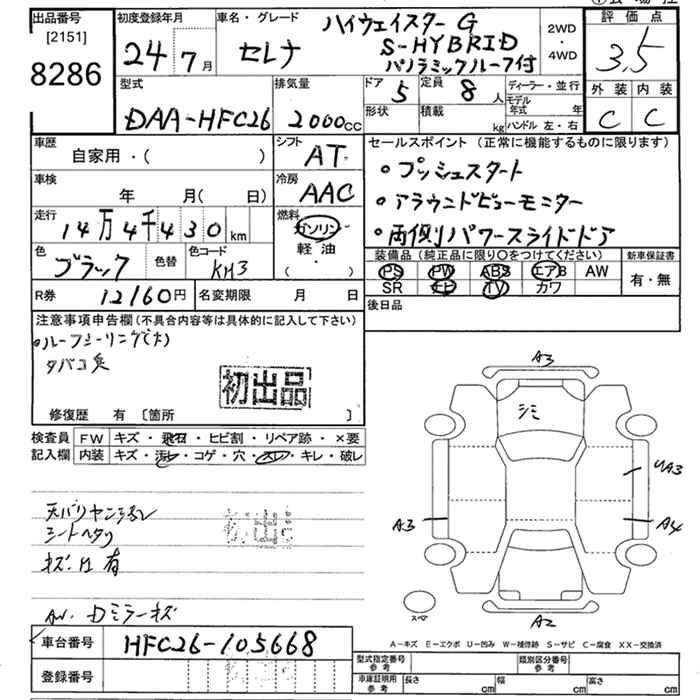 出品番号
[2151]
8286
初度登録年月
24年7月
車名・グレード
セレナ
ハイウェイスターG
S-HYBRID
パノラミックルーフ付
2WD
・
4WD
評価点
3.5
外装 内装
C C
型式
DAA-HFC26
排気量
2000cc
ドア
5
定員
8人
形状
積載
kg
ディーラー・並行
モデル年式 年
ハンドル 左・右
車歴
自家用・( )
シフト
AT
車検
年 月( 日)
冷房
AAC
走行
14万4千430km
燃料
ガソリン
軽・油
・
( )
色
ブラック
色替
色コード
KH3
R券 12160円
名変期限 月 日
セールスポイント(正常に機能するものに限ります)
・プッシュスタート
・アラウンドビューモニター
・両側パワースライドドア
装備品(純正品に限り○をつけてください)
PS PW ABS エアB AW
SR ナビ TV カワ
新車保証書
有・無
後日品
注意事項申告欄(不具合内容等は具体的に記入して下さい)
・ルーフシーリング(大)
タバコ臭
初出品
修復歴 有 〔箇所 〕
検査員記入欄
FW キズ・飛石・ヒビ割・リペア跡・×要
内装 キズ・汚レ・コゲ・穴・スレ・キレ・破レ
シートヘタリ
キズ・凹 有
AW.Dミラーキズ
初出品
車台番号 HFC26-105668
登録番号
A3
シミ
UA3
A3
A4
スペア
A2
A-キズ E-エクボ U-凹み W-補修跡 S-サビ C-腐食 XX-交換済
型式指定番号 参考
類別区分番号 参考
車庫証明用 参考
長さ cm
幅 cm
高さ cm